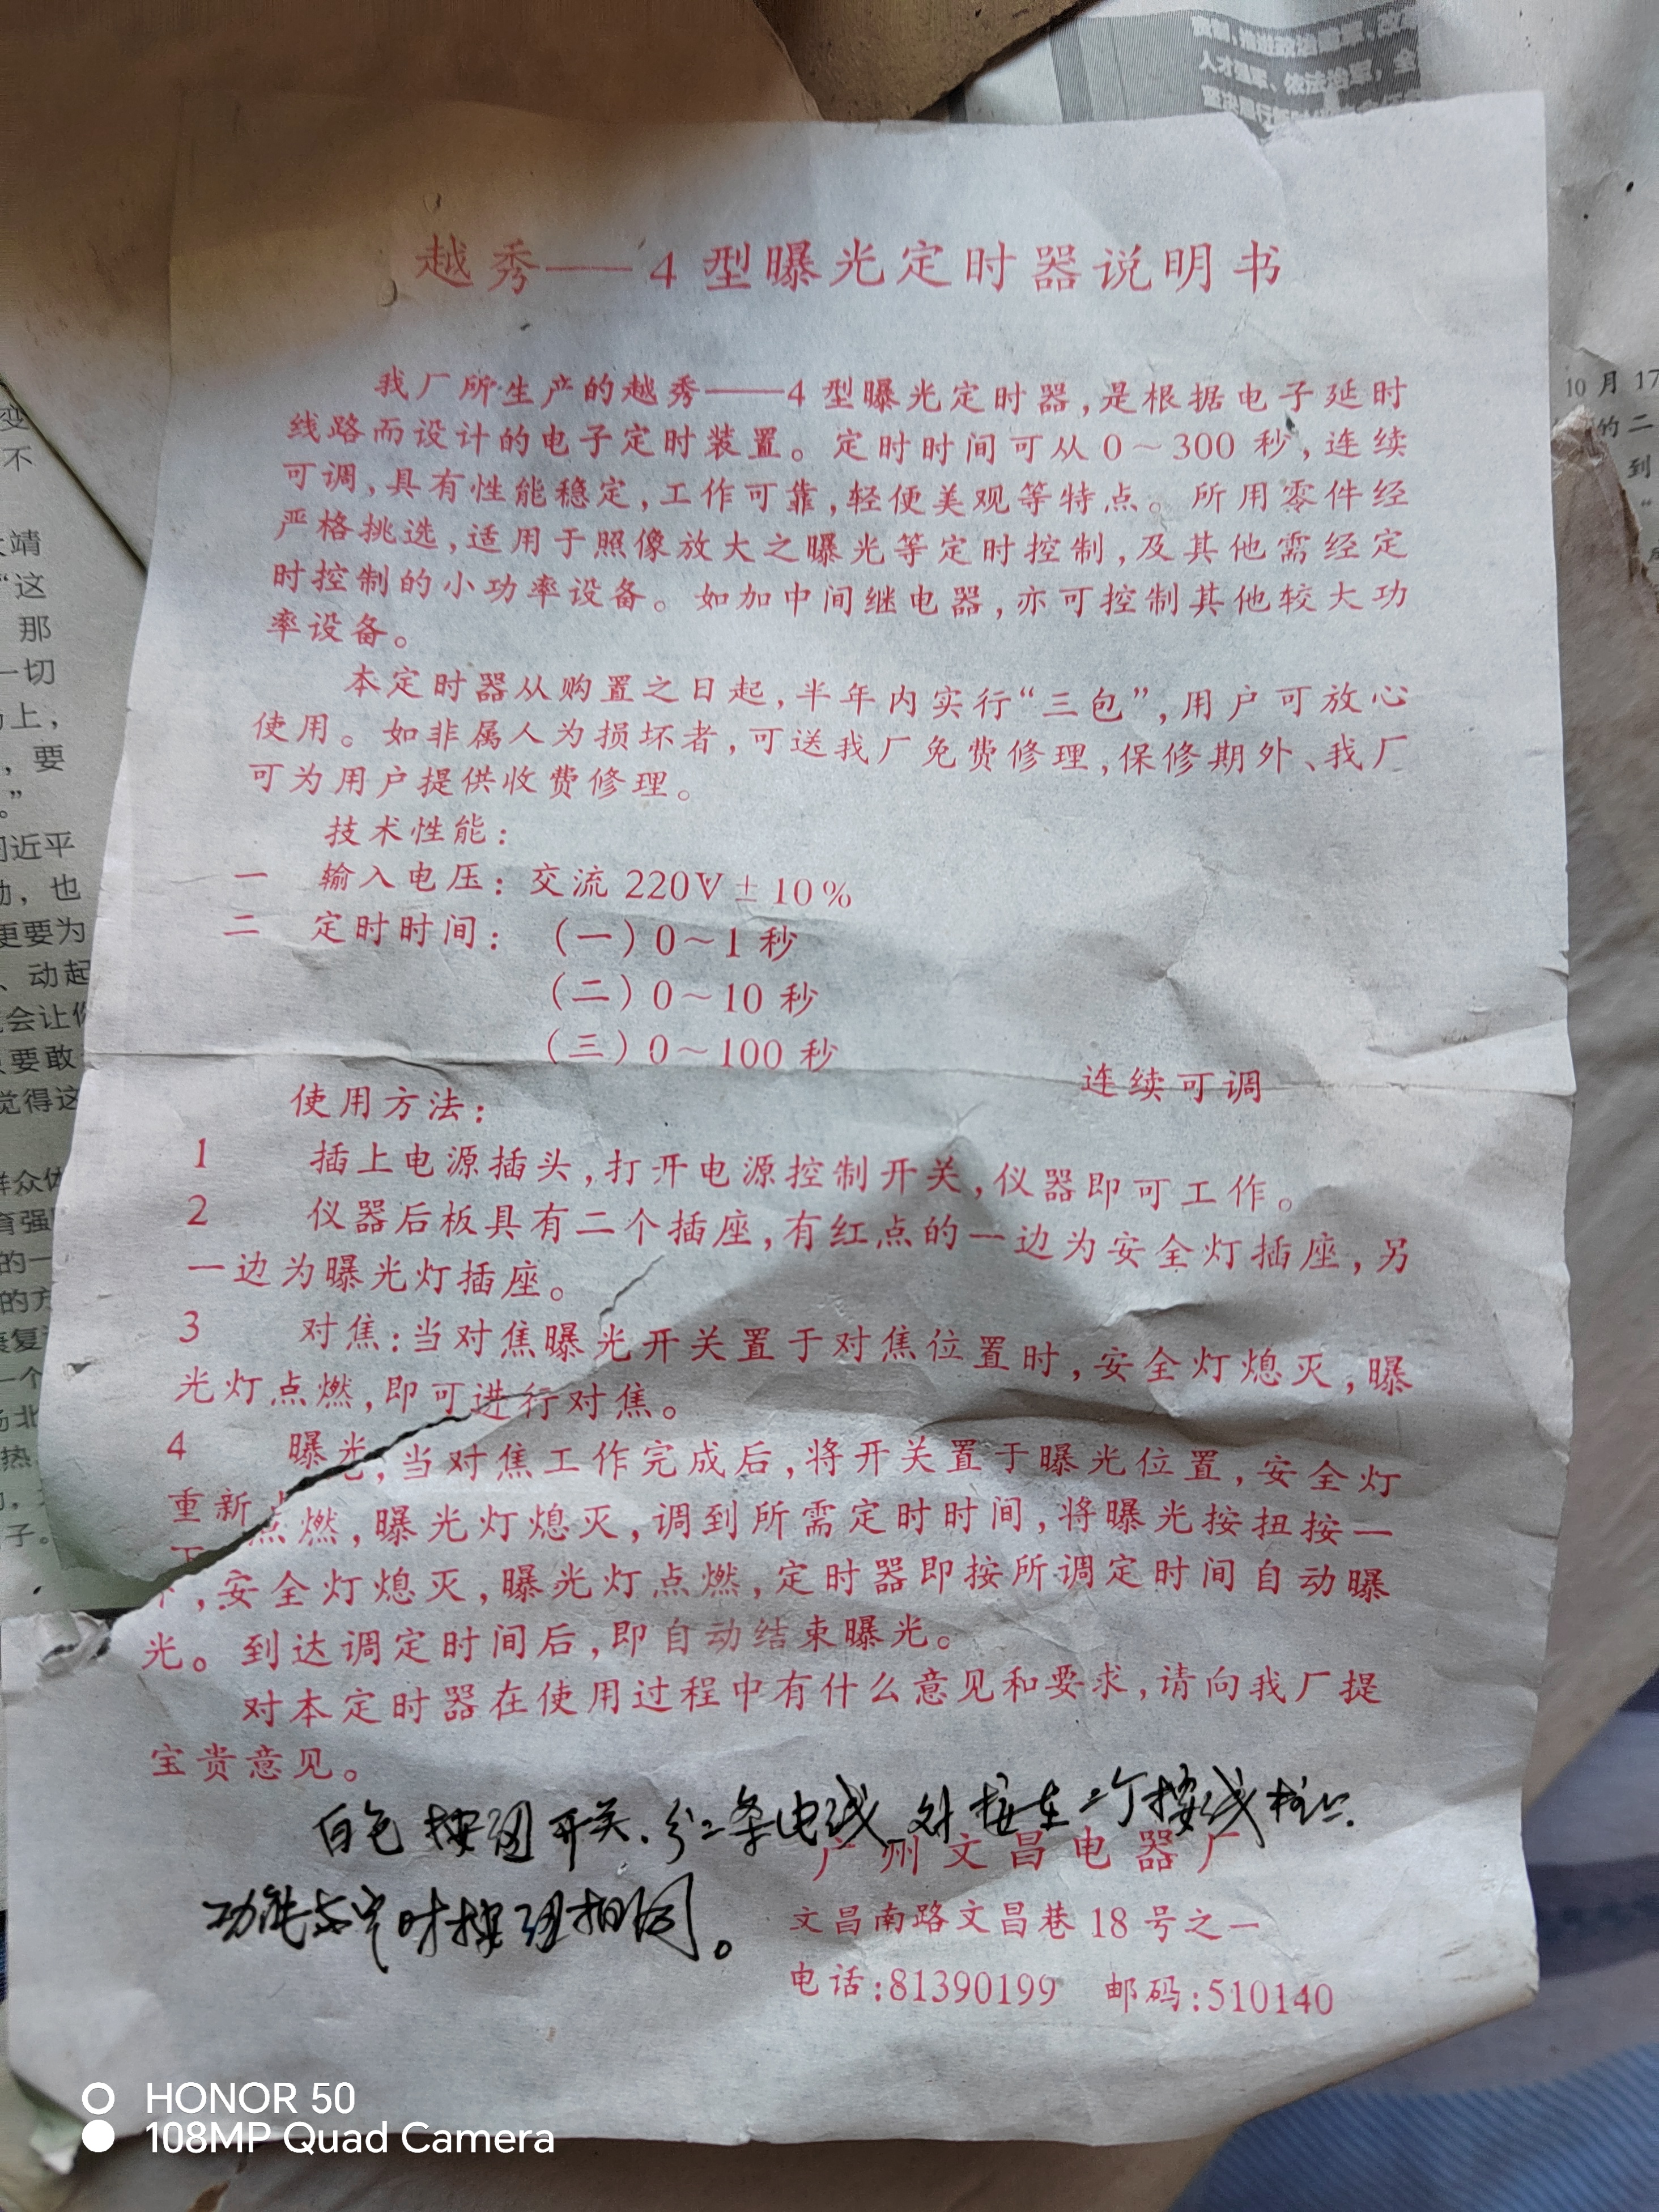 越秀——4型曝光定时器说明书
我厂所生产的越秀——4型曝光定时器,是根据电子延时
线路而设计的电子定时装置。定时时间可从0～300秒,连续
可调,具有性能稳定,工作可靠,轻便美观等特点。所用零件经
严格挑选,适用于照像放大之曝光等定时控制,及其他需经定
时控制的小功率设备。如加中间继电器,亦可控制其他较大功
率设备。
本定时器从购置之日起,半年内实行“三包”,用户可放心
使用。如非属人为损坏者,可送我厂免费修理,保修期外、我厂
可为用户提供收费修理。
技术性能:
一 输入电压:交流220V±10%
二 定时时间: (一)0～1秒
(二)0～10秒
(三)0～100秒
连续可调
使用方法:
1 插上电源插头,打开电源控制开关,仪器即可工作。
2 仪器后板具有二个插座,有红点的一边为安全灯插座,另
一边为曝光灯插座。
3 对焦:当对焦曝光开关置于对焦位置时,安全灯熄灭,曝
光灯点燃,即可进行对焦。
4 曝光,当对焦工作完成后,将开关置于曝光位置,安全灯
重新点燃,曝光灯熄灭,调到所需定时时间,将曝光按扭按一
下,安全灯熄灭,曝光灯点燃,定时器即按所调定时间自动曝
光。到达调定时间后,即自动结束曝光。
对本定时器在使用过程中有什么意见和要求,请向我厂提
宝贵意见。
白色按钮开关.引二条电线 对接在二个接线柱上.
功能与定时按钮相同。
广州文昌电器厂
文昌南路文昌巷18号之一
电话:81390199 邮码:510140
变
不
靖
“这
那
一切
上,
,要
。”
近平
,也
更要为
、动起
会让你
要敢
觉得这
群众体
育强
的一
的方
一个
热
子。
人才强军、依法治军,全
10月17
的二
到
HONOR 50
108MP Quad Camera